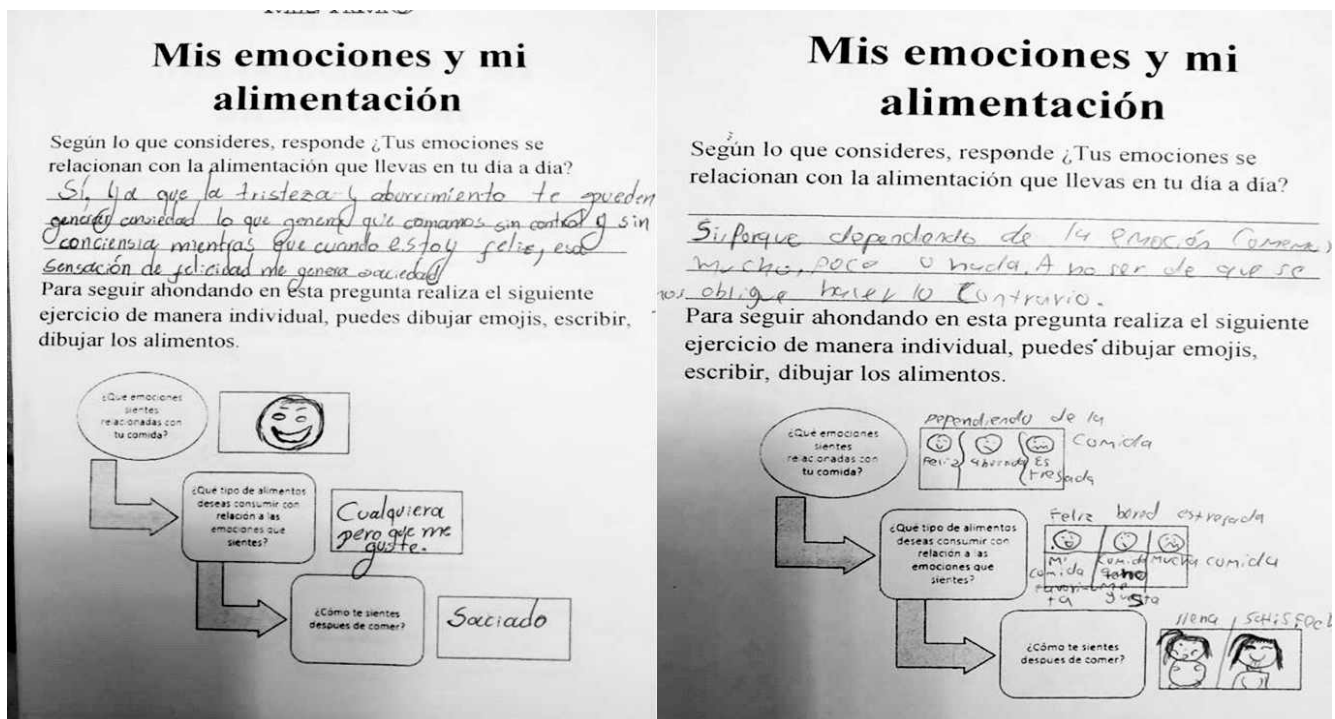 Mis emociones y mi
alimentación
Según lo que consideres, responde ¿Tus emociones se
relacionan con la alimentación que llevas en tu día a día?
Sí, ya que la tristeza y aburrimiento te pueden
generar ansiedad lo que genera que comamos sin control y sin
conciensia mientras que cuando estoy feliz, esa
sensación de felicidad me genera saciedad
Para seguir ahondando en esta pregunta realiza el siguiente
ejercicio de manera individual, puedes dibujar emojis, escribir,
dibujar los alimentos.
¿Qué emociones
sientes
relacionadas con
tu comida?
¿Qué tipo de alimentos
deseas consumir con
relación a las
emociones que
sientes?
Cualquiera
pero que me
guste.
¿Cómo te sientes
despues de comer?
Saciado
Mis emociones y mi
alimentación
Según lo que consideres, responde ¿Tus emociones se
relacionan con la alimentación que llevas en tu día a día?
Si, porque dependiendo de la emoción comemos
mucho, poco o nada. A no ser de que se
nos obligue hacer lo contrario.
Para seguir ahondando en esta pregunta realiza el siguiente
ejercicio de manera individual, puedes dibujar emojis,
escribir, dibujar los alimentos.
¿Qué emociones
sientes
relacionadas con
tu comida?
Dependiendo de la
comida
Feliz aburrida Es
tresada
¿Qué tipo de alimentos
deseas consumir con
relación a las
emociones que
sientes?
Feliz bored estresada
Mi comida
Comida que no me gusta
Mucha comida
¿Cómo te sientes
despues de comer?
llena